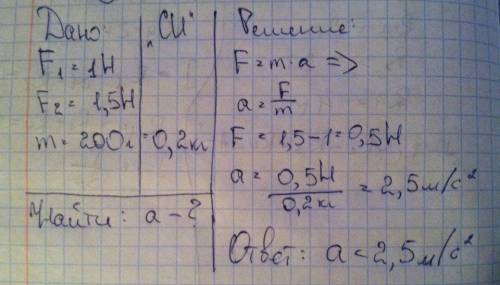 Дано:
"СИ"
F₁ = 1Н
F₂ = 1,5Н
m = 200г = 0,2кг
Найти: a - ?
Решение:
F = m · a =>
a = F/m
F = 1,5 - 1 = 0,5Н
a = 0,5Н/0,2кг = 2,5м/с²
Ответ: a = 2,5м/с²